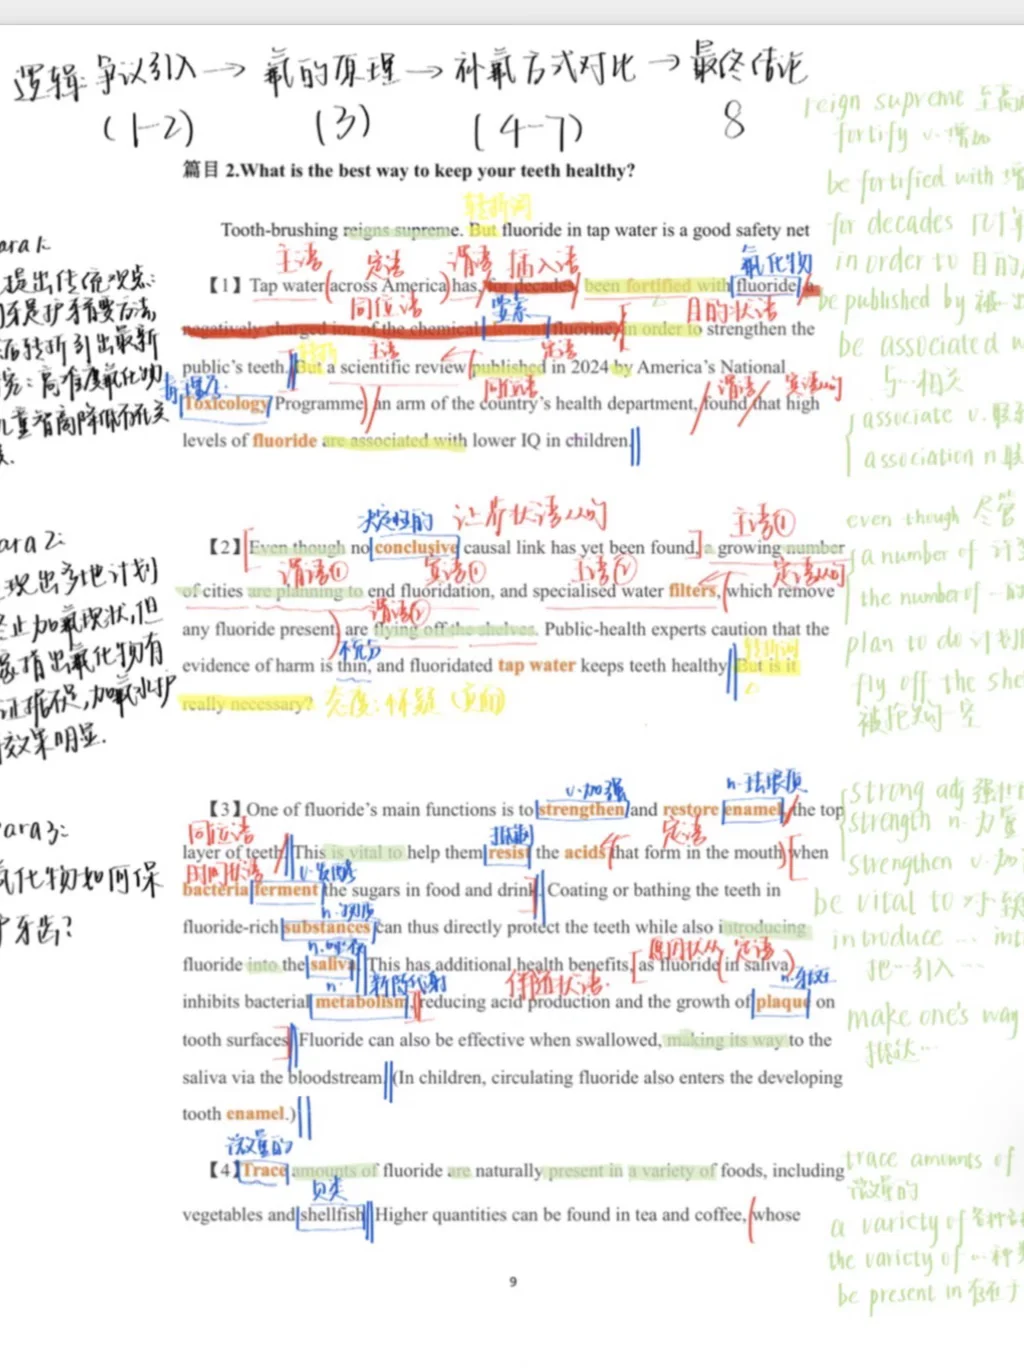 逻辑: 争议引入 → 氟的原理 → 补氟方式对比 → 最终结论
(1-2) (3) (4-7) 8
篇目 2.What is the best way to keep your teeth healthy?
转折词
Tooth-brushing reigns supreme. But fluoride in tap water is a good safety net
主语 定语 谓语 插入语 氟化物
【1】Tap water across America has, for decades, been fortified with fluoride, a
同位语 要素 目的状语
negatively charged ion of the chemical element fluorine, in order to strengthen the
转折 主语 定语
public's teeth. But a scientific review published in 2024 by America's National
同位语 谓语 宾语从句
Toxicology Programme, an arm of the country's health department, found that high
levels of fluoride are associated with lower IQ in children.
决定性的 让步状语从句 主语①
【2】Even though no conclusive causal link has yet been found, a growing number
谓语① 宾语① 主语② 定语从句
of cities are planning to end fluoridation, and specialised water filters, which remove
谓语②
any fluoride present, are flying off the shelves. Public-health experts caution that the
不充分 转折词
evidence of harm is thin, and fluoridated tap water keeps teeth healthy. But is it
really necessary? 态度: 怀疑 (负面)
v.加强 n.珐琅质
【3】One of fluoride's main functions is to strengthen and restore enamel, the top
同位语 抵制 定语
layer of teeth. This is vital to help them resist the acids that form in the mouth when
时间状语 v.发酵
bacteria ferment the sugars in food and drink. Coating or bathing the teeth in
n.物质
fluoride-rich substances can thus directly protect the teeth while also introducing
定语
fluoride into the saliva. This has additional health benefits, as fluoride in saliva
n.新陈代谢 伴随状语
inhibits bacterial metabolism, reducing acid production and the growth of plaque on
tooth surfaces. Fluoride can also be effective when swallowed, making its way to the
saliva via the bloodstream. (In children, circulating fluoride also enters the developing
tooth enamel.)
微量的
【4】Trace amounts of fluoride are naturally present in a variety of foods, including
贝类
vegetables and shellfish. Higher quantities can be found in tea and coffee, whose
9
ara 1:
提出传统观点:
ara 2:
现出多地计划
终止加氟现状,但
指出氟化物有
证据不足,加氟水护
效果明显.
ara 3:
氟化物如何保
护牙齿?
reign supreme 至高
fortify v.增加
be fortified with 增
for decades 几十年
in order to 目的
be published by 被
be associated w
与…相关
associate v.联系
association n.联
even though 尽管
a number of 许多
the number of …的
plan to do 计划
fly off the she
被抢购一空
strong adj 强壮
strength n.力量
strengthen v.加
be vital to 对
introduce … int
把…引入…
make one's way
抵达…
trace amounts of
微量的
a variety of 各种各
the variety of …种
be present in 存在于